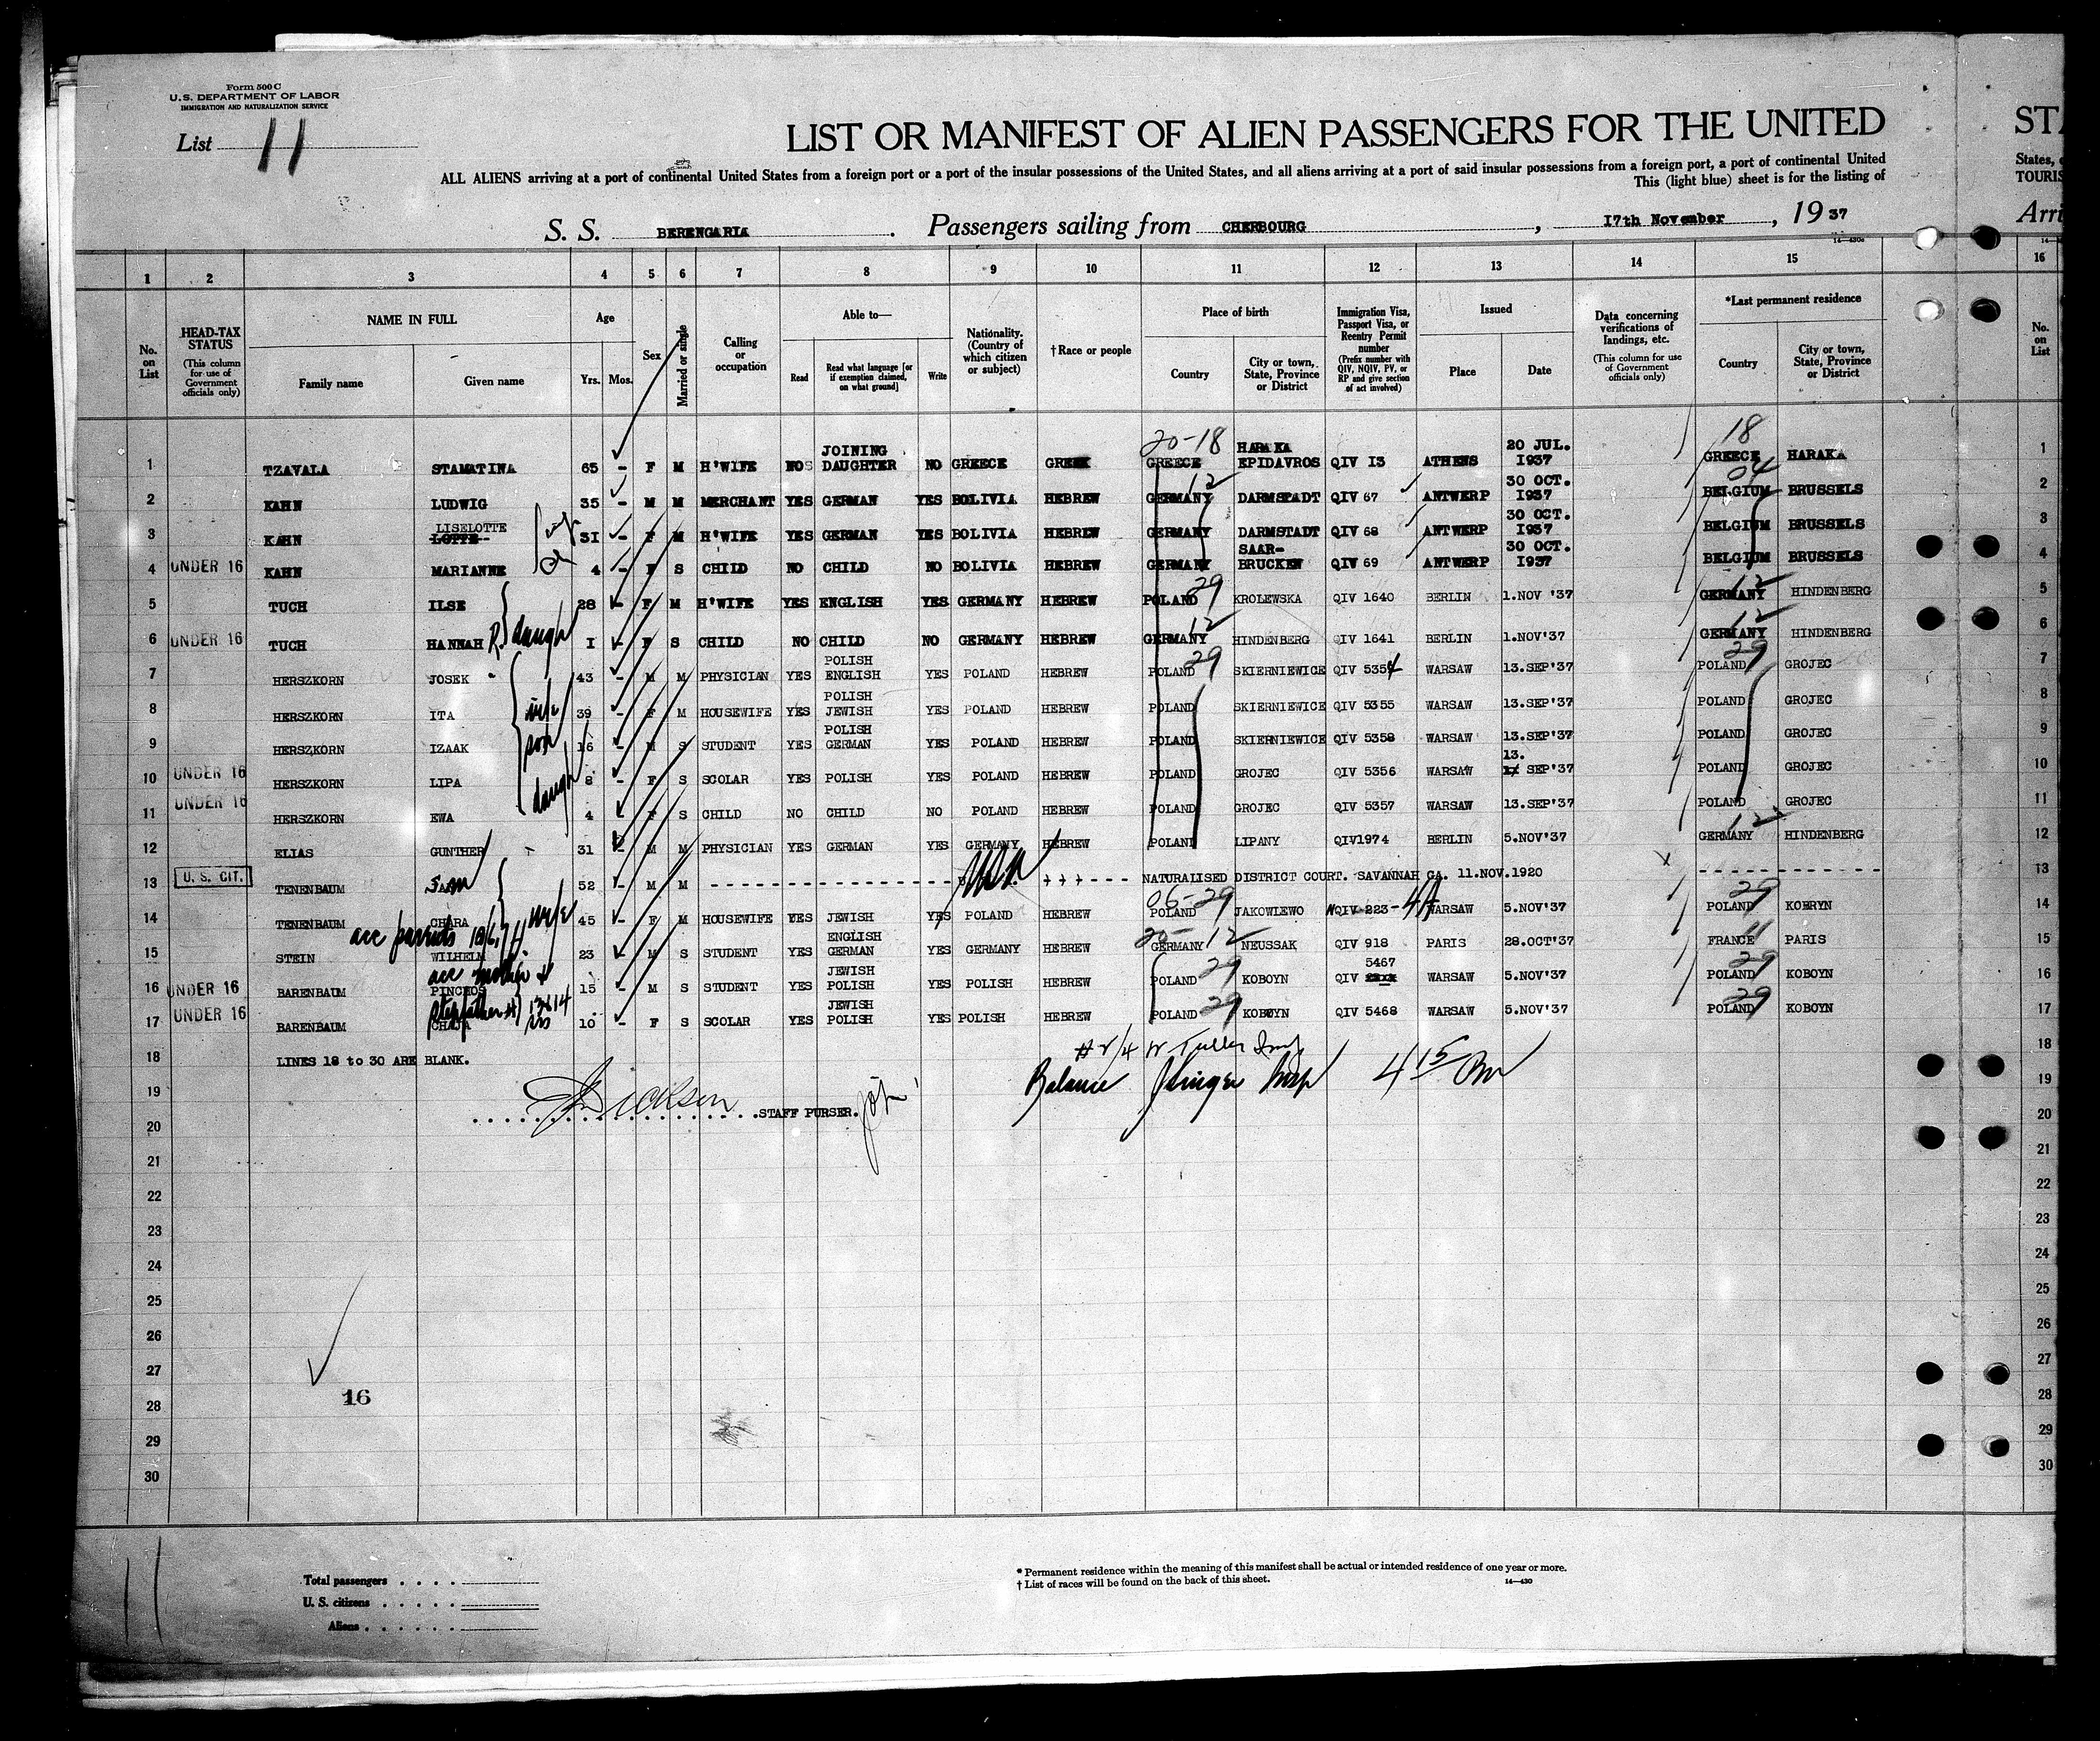 Form 500 C
U. S. DEPARTMENT OF LABOR
IMMIGRATION AND NATURALIZATION SERVICE
List 11
LIST OR MANIFEST OF ALIEN PASSENGERS FOR THE UNITED
STA
ALL ALIENS arriving at a port of continental United States from a foreign port or a port of the insular possessions of the United States, and all aliens arriving at a port of said insular possessions from a foreign port, a port of continental United
States,
This (light blue) sheet is for the listing of
TOURIS
S. S. BERENGARIA. Passengers sailing from CHERBOURG, 17th November, 19 37
Arri
14—430c
1 2 3 4 5 6 7 8 9 10 11 12 13 14 15 16
No. on List
HEAD-TAX STATUS
(This column for use of Government officials only)
NAME IN FULL
Family name Given name
Age
Yrs. Mos.
Sex
Married or single
Calling or occupation
Able to—
Read Read what language [or if exemption claimed, on what ground] Write
Nationality. (Country of which citizen or subject)
†Race or people
Place of birth
Country City or town, State, Province or District
Immigration Visa, Passport Visa, or Reentry Permit number
(Prefix number with QIV, NQIV, PV, or RP and give section of act involved)
Issued
Place Date
Data concerning verifications of landings, etc.
(This column for use of Government officials only)
*Last permanent residence
Country City or town, State, Province or District
No. on List
20-18 18
1 TZAVALA STAMATINA 65 - F M H'WIFE NOS JOINING DAUGHTER NO GREECE GREEK GREECE HARAKA EPIDAVROS QIV I3 ATHENS 20 JUL. I937 GREECE HARAKA 1
12 04
2 KAHN LUDWIG 35 - M M MERCHANT YES GERMAN YES BOLIVIA HEBREW GERMANY DARMSTADT QIV 67 ANTWERP 30 OCT. I937 BELGIUM BRUSSELS 2
3 KAHN LISELOTTE LOTTE 3I - F M H'WIFE YES GERMAN YES BOLIVIA HEBREW GERMANY DARMSTADT QIV 68 ANTWERP 30 OCT. I937 BELGIUM BRUSSELS 3
4 UNDER 16 KAHN MARIANNE 4 - F S CHILD NO CHILD NO BOLIVIA HEBREW GERMANY SAAR-BRUCKEN QIV 69 ANTWERP 30 OCT. I937 BELGIUM BRUSSELS 4
29 12
5 TUCH ILSE 28 - F M H'WIFE YES ENGLISH YES GERMANY HEBREW POLAND KROLEWSKA QIV 1640 BERLIN 1.NOV '37 GERMANY HINDENBERG 5
12 12
6 UNDER 16 TUCH HANNAH R. daught I - F S CHILD NO CHILD NO GERMANY HEBREW GERMANY HINDENBERG QIV 1641 BERLIN 1.NOV'37 GERMANY HINDENBERG 6
29 29
7 HERSZKORN JOSEK 43 - M M PHYSICIAN YES POLISH ENGLISH YES POLAND HEBREW POLAND SKIERNIEWICE QIV 5354 WARSAW 13.SEP'37 POLAND GROJEC 7
8 HERSZKORN ITA wife 39 - F M HOUSEWIFE YES POLISH JEWISH YES POLAND HEBREW POLAND SKIERNIEWICE QIV 5355 WARSAW 13.SEP'37 POLAND GROJEC 8
9 HERSZKORN IZAAK son 16 - M S STUDENT YES POLISH GERMAN YES POLAND HEBREW POLAND SKIERNIEWICE QIV 5358 WARSAW 13.SEP'37 POLAND GROJEC 9
10 UNDER 16 HERSZKORN LIPA daught 8 - F S SCOLAR YES POLISH YES POLAND HEBREW POLAND GROJEC QIV 5356 WARSAW 13. SEP'37 POLAND GROJEC 10
11 UNDER 16 HERSZKORN EWA 4 - F S CHILD NO CHILD NO POLAND HEBREW POLAND GROJEC QIV 5357 WARSAW 13.SEP'37 POLAND GROJEC 11
12
12 ELIAS GUNTHER 31 - M M PHYSICIAN YES GERMAN YES GERMANY HEBREW POLAND LIPANY QIV1974 BERLIN 5.NOV'37 GERMANY HINDENBERG 12
13 U. S. CIT. TENENBAUM Sam 52 - M M USA NATURALISED DISTRICT COURT. SAVANNAH GA. 11.NOV.1920 13
06-29 29
14 TENENBAUM CHARA wife 45 - F M HOUSEWIFE YES JEWISH YES POLAND HEBREW POLAND JAKOWLEWO NQIV 223-4A WARSAW 5.NOV'37 POLAND KOBRYN 14
acc parents 16/17
20-12 11
15 STEIN WILHELM 23 - M S STUDENT YES ENGLISH GERMAN YES GERMANY HEBREW GERMANY NEUSSAK QIV 918 PARIS 28.OCT'37 FRANCE PARIS 15
acc mother &
29 29
16 UNDER 16 BARENBAUM PINCHOS 15 - M S STUDENT YES JEWISH POLISH YES POLISH HEBREW POLAND KOBOYN QIV 5467 WARSAW 5.NOV'37 POLAND KOBOYN 16
stepfather 13 & 14
29 29
17 UNDER 16 BARENBAUM CHAJA 10 - F S SCOLAR YES JEWISH POLISH YES POLISH HEBREW POLAND KOBOYN QIV 5468 WARSAW 5.NOV'37 POLAND KOBOYN 17
18 LINES 18 to 30 ARE BLANK. 18
# 2/4 W Tuller Insp
Balance Singer Insp 4 15 Pm
19 19
Dickson STAFF PURSER.
20 20
21 21
22 22
23 23
24 24
25 25
26 26
27 27
16
28 28
29 29
30 30
11
Total passengers . . . .
U. S. citizens . . . . .
Aliens . . . . . . .
* Permanent residence within the meaning of this manifest shall be actual or intended residence of one year or more.
† List of races will be found on the back of this sheet.
14—430